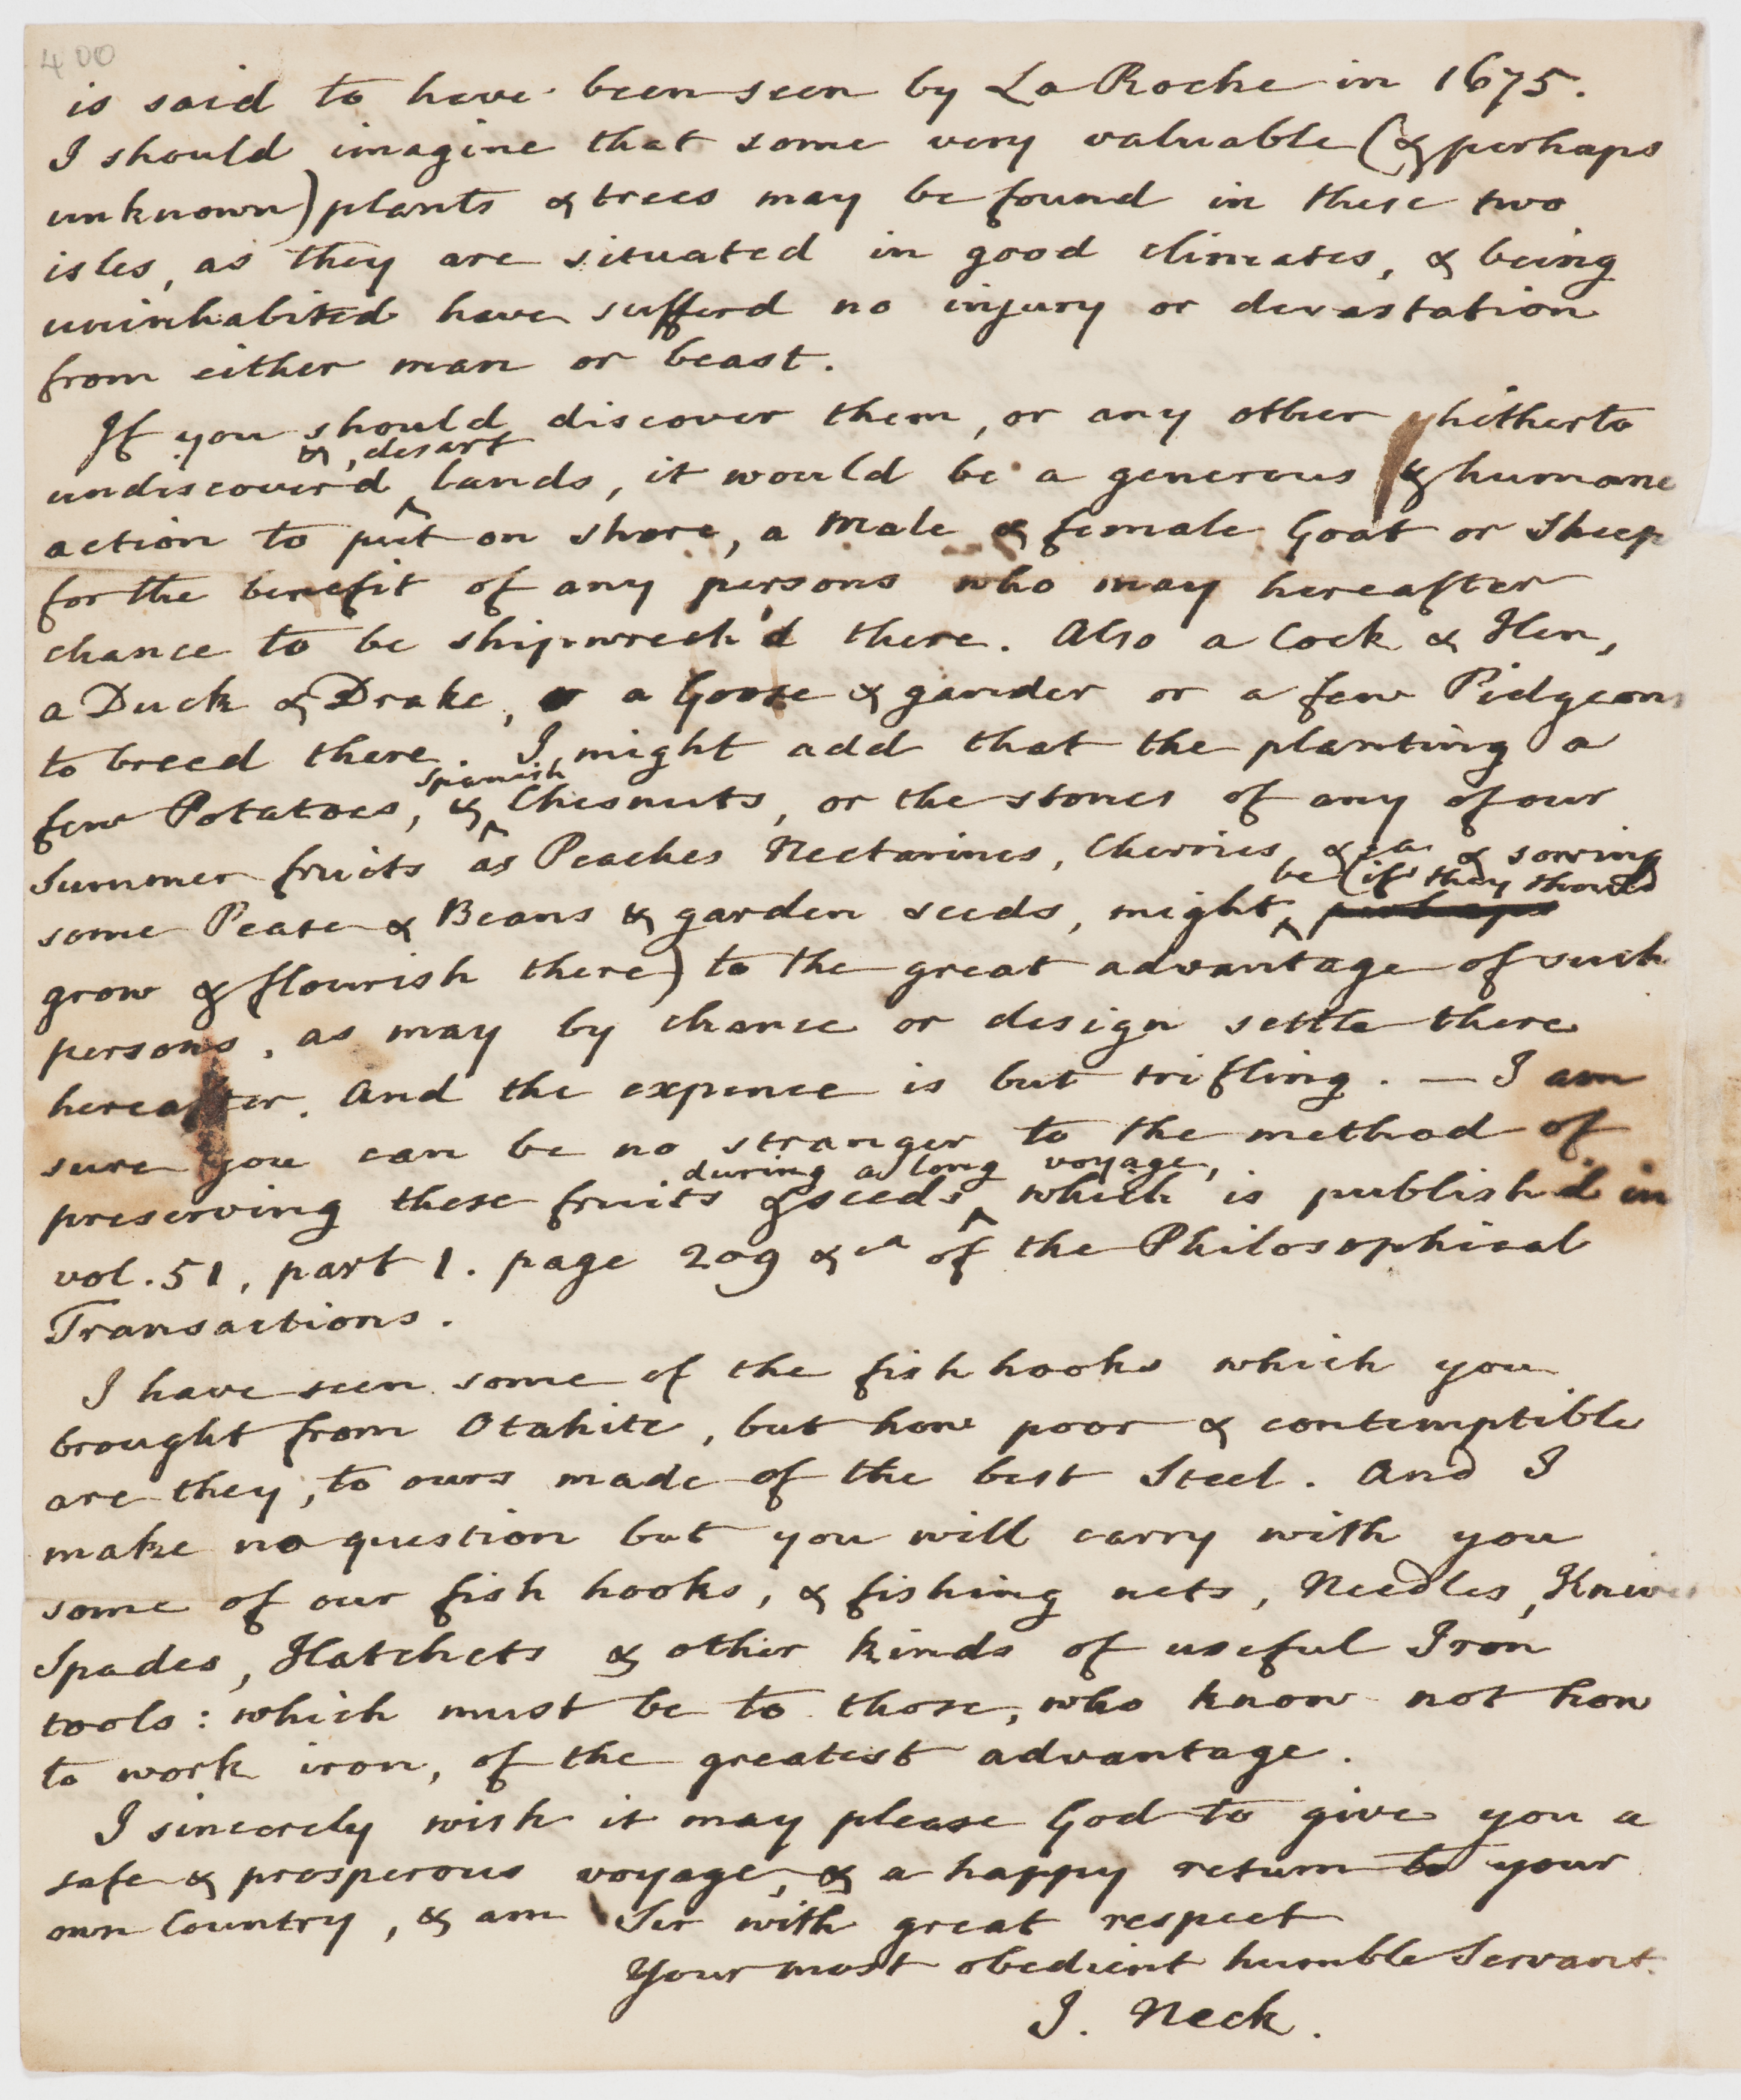 400
is said to have been seen by La Roche in 1675.
I should imagine that some very valuable (& perhaps
unknown) plants & trees may be found in these two
isles, as they are situated in good climates, & being
uninhabited have sufferd no injury or devastation
from either man or beast.
If you should discover them, or any other hitherto
&, desart
undiscover'd lands, it would be a generous & humane
action to put on shore, a Male & female Goat or Sheep
for the benefit of any persons who may hereafter
chance to be shipwreck'd there. Also a Cock & Hen,
a Duck & Drake, or a Goose & gander or a few Pidgeons
to breed there. I might add that the planting a
spanish
few Potatoes, & Chesnuts, or the stones of any of our
Summer fruits as Peaches Nectarines, Cherries &ca & sowing
be (if they should
some Pease & Beans & garden seeds, might perhaps
grow & flourish there) to the great advantage of such
persons, as may by chance or design settle there
hereafter. And the expence is but trifling. — I am
sure you can be no stranger to the method of
during a long voyage,
preserving these fruits & seeds which is publish'd in
vol. 51, part 1. page 209 &ca of the Philosophical
Transactions.
I have seen some of the fish hooks which you
brought from Otahite, but how poor & contemptible
are they, to ours made of the best Steel. And I
make no question but you will carry with you
some of our fish hooks, & fishing nets, Needles, Knives
Spades, Hatchets & other kinds of useful Iron
tools: which must be to those, who know not how
to work iron, of the greatest advantage.
I sincerely wish it may please God to give you a
safe & prosperous voyage, & a happy return to your
own Country, & am Sir with great respect
Your most obedient humble Servant.
J. Neck.